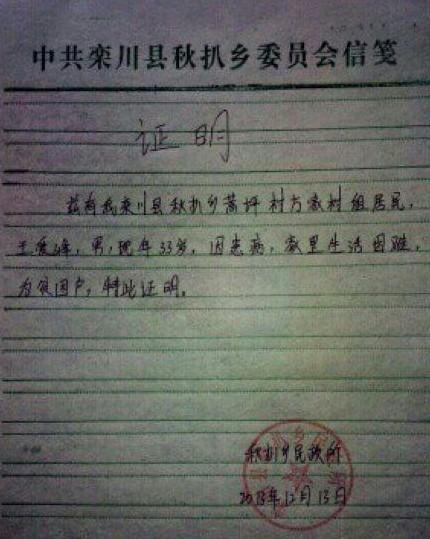 中共栾川县秋扒乡委员会信笺
证明
兹有我栾川县秋扒乡蒿坪村方家村组居民,
王爱峰,男,现年33岁,因患病,家里生活困难,
为贫困户,特此证明。
秋扒乡民政所
2013年12月13日